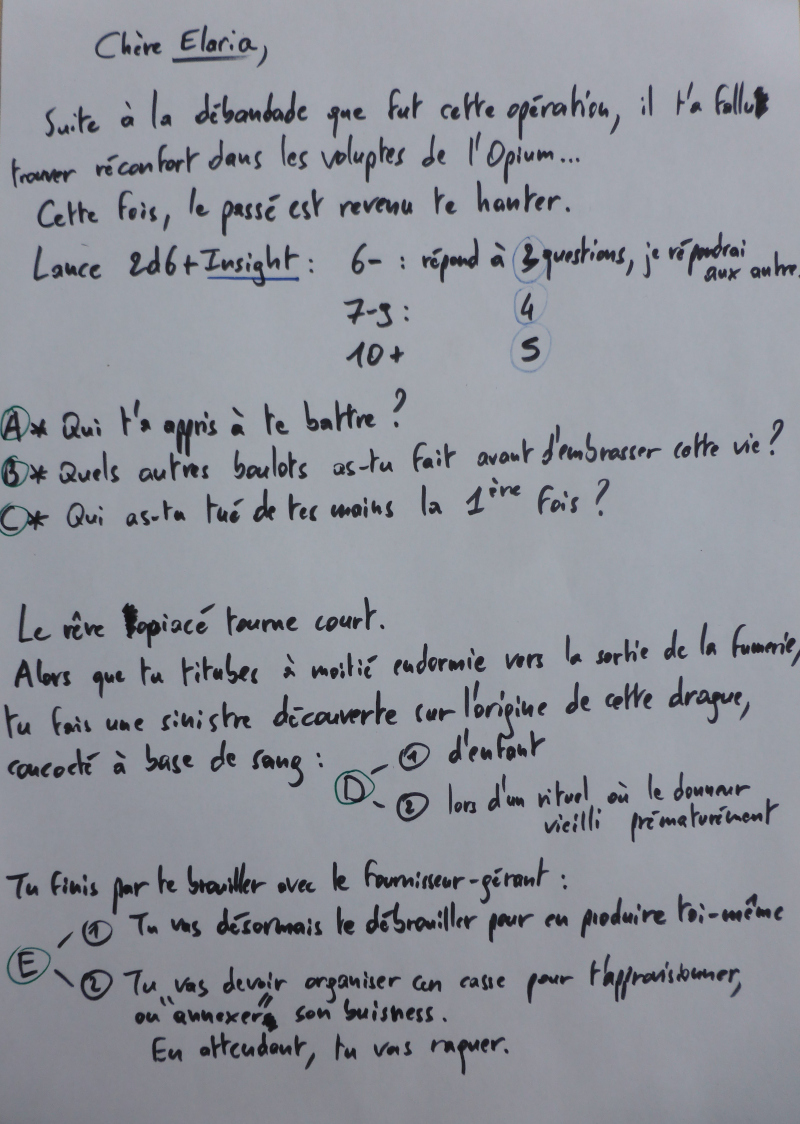 Chère Elaria,
Suite à la débandade que fut cette opération, il t'a fallu
trouver réconfort dans les voluptes de l'Opium...
Cette fois, le passé est revenu te hanter.
Lance 2d6 + Insight : 6- : répond à 3 questions, je répondrai
aux autre.
7-9 : 4
10+ 5
A * Qui t'a appris à te battre ?
B * Quels autres boulots as-tu fait avant d'embrasser cette vie ?
C * Qui as-tu tué de tes mains la 1ère fois ?
Le rêve opiacé tourne court.
Alors que tu titubes à moitié endormie vers la sortie de la fumerie,
tu fais une sinistre découverte sur l'origine de cette drogue,
concocté à base de sang :
D
1 d'enfant
2 lors d'un rituel où le donneur
vieilli prématurément
Tu finis par te brouiller avec le fournisseur-gérant :
E
1 Tu vas désormais te débrouiller pour en produire toi-même
2 Tu vas devoir organiser un casse pour t'approvisionner,
ou "annexer" son buisness.
En attendant, tu vas raquer.